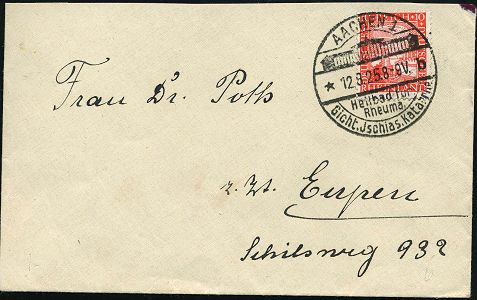 AACHEN 1
10
* 12.8.25.8-9V. b
Heilbad für
Rheuma
Gicht. Jschias. Katarrhe
Frau Dr. Poth
z. Zt. Eupen
Schilsweg 932